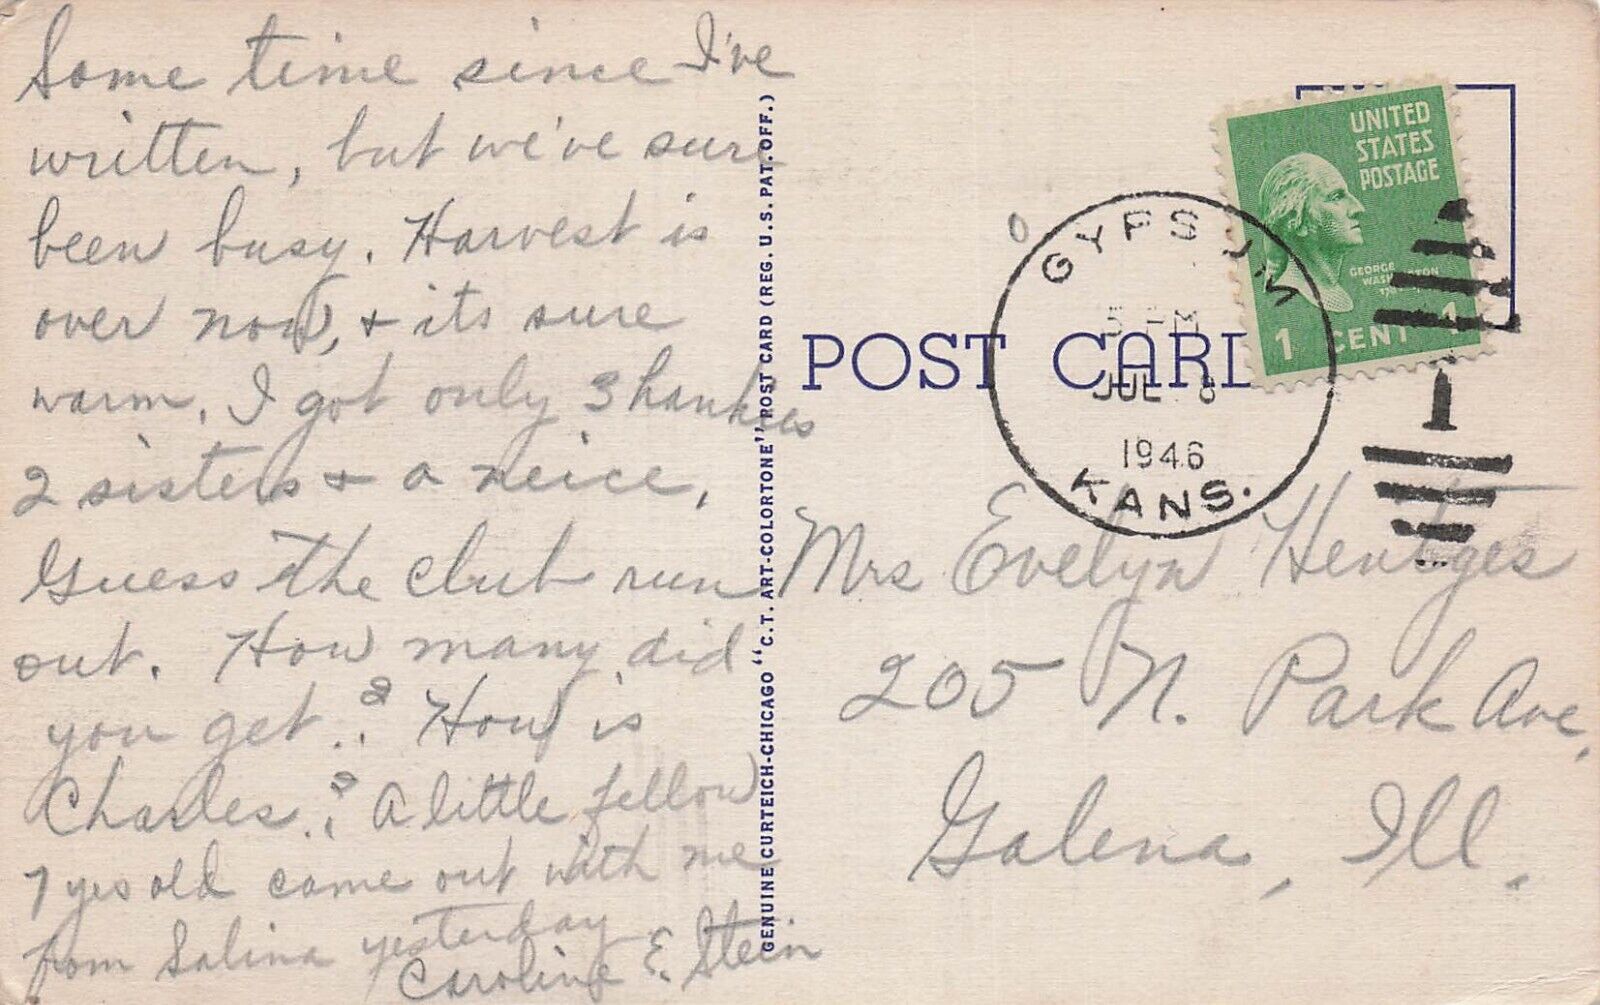 Some time since I've
written, but we've sure
been busy. Harvest is
over now, & its sure
warm. I got only 3 hankies
2 sisters & a neice,
Guess the club run
out. How many did
you get..? How is
Charles..? A little fellow
7 yrs old came out with me
from Salina yesterday
Caroline E. Stein
GENUINE CURTEICH-CHICAGO "C.T. ART-COLORTONE" POST CARD (REG. U.S. PAT. OFF.)
POST CARD
UNITED
STATES
POSTAGE
GEORGE
WASHINGTON
1 CENT 1
GYPSUM
5 PM
JUL 8
1946
KANS.
1
Mrs Evelyn Hentges
205 N. Park Ave,
Galena, Ill.